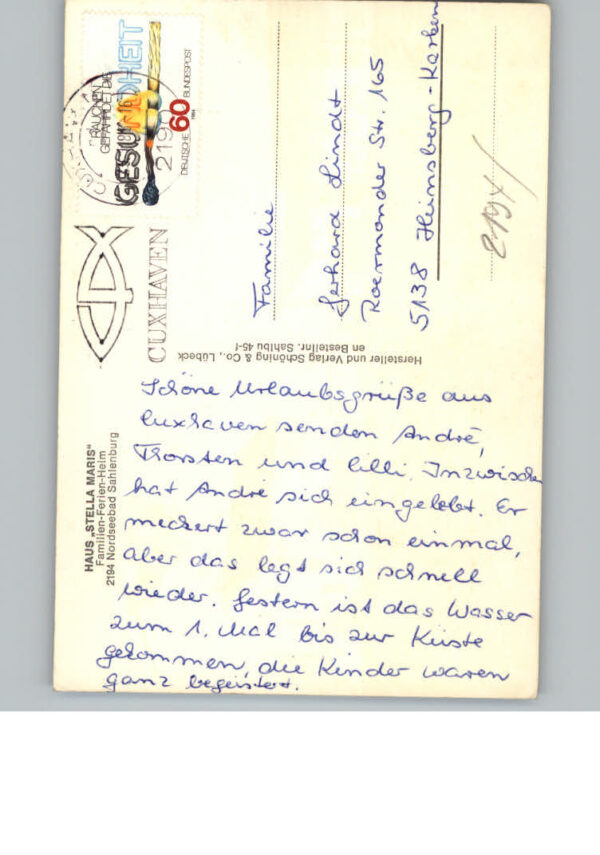 HAUS „STELLA MARIS"
Familien-Ferien-Heim
2194 Nordseebad Sahlenburg
Schöne Urlaubsgrüße aus
Cuxhaven senden André,
Thorsten und Cilli. Inzwischen
hat André sich eingelebt. Er
meckert zwar schon einmal,
aber das legt sich schnell
wieder. Gestern ist das Wasser
zum 1. Mal bis zur Küste
gekommen, die Kinder waren
ganz begeistert.
Hersteller und Verlag Schöning & Co., Lübeck
en Bestellnr. Sahlbu 45-f
CUXHAVEN
RAUCHEN
GEFÄHRDET DIE
GESUNDHEIT
DEUTSCHE BUNDESPOST
60
1984
2190
Familie
Gerhard Lindt
Roermonder Str. 165
5138 Heinsberg-Karken
2194/